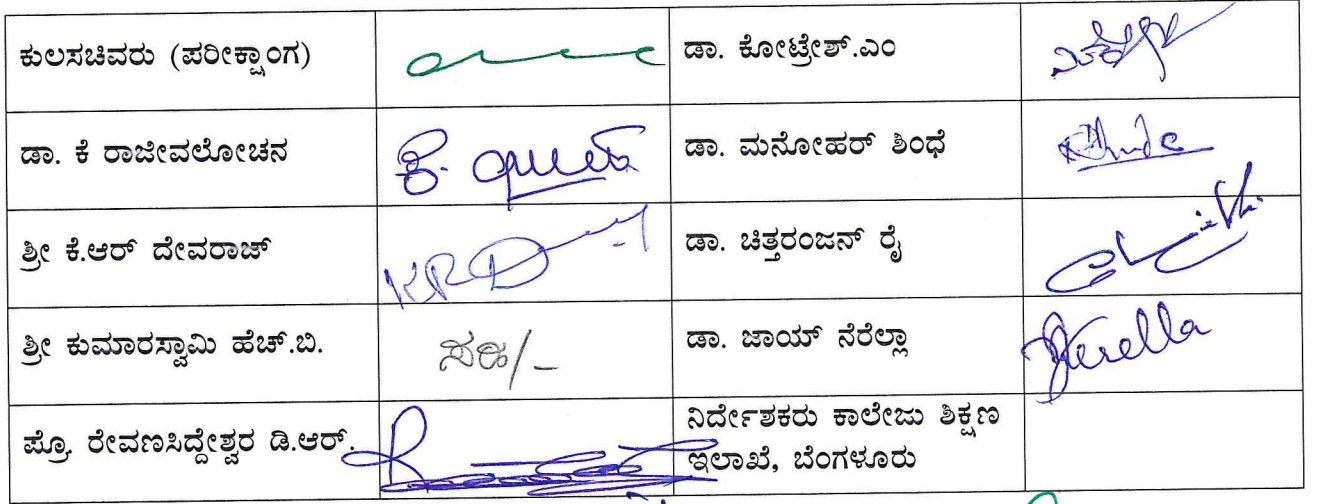 ಕುಲಸಚಿವರು (ಪರೀಕ್ಷಾಂಗ) ಡಾ. ಕೋಟ್ರೇಶ್.ಎಂ
ಡಾ. ಕೆ ರಾಜೀವಲೋಚನ ಡಾ. ಮನೋಹರ್ ಶಿಂಧೆ
ಶ್ರೀ ಕೆ.ಆರ್ ದೇವರಾಜ್ KRD ಡಾ. ಚಿತ್ತರಂಜನ್ ರೈ
ಶ್ರೀ ಕುಮಾರಸ್ವಾಮಿ ಹೆಚ್.ಬಿ. ಸಹಿ/- ಡಾ. ಜಾಯ್ ನೆರೆಲ್ಲಾ Jnerella
ಪ್ರೊ. ರೇವಣಸಿದ್ದೇಶ್ವರ ಡಿ.ಆರ್. ನಿರ್ದೇಶಕರು ಕಾಲೇಜು ಶಿಕ್ಷಣ
ಇಲಾಖೆ, ಬೆಂಗಳೂರು